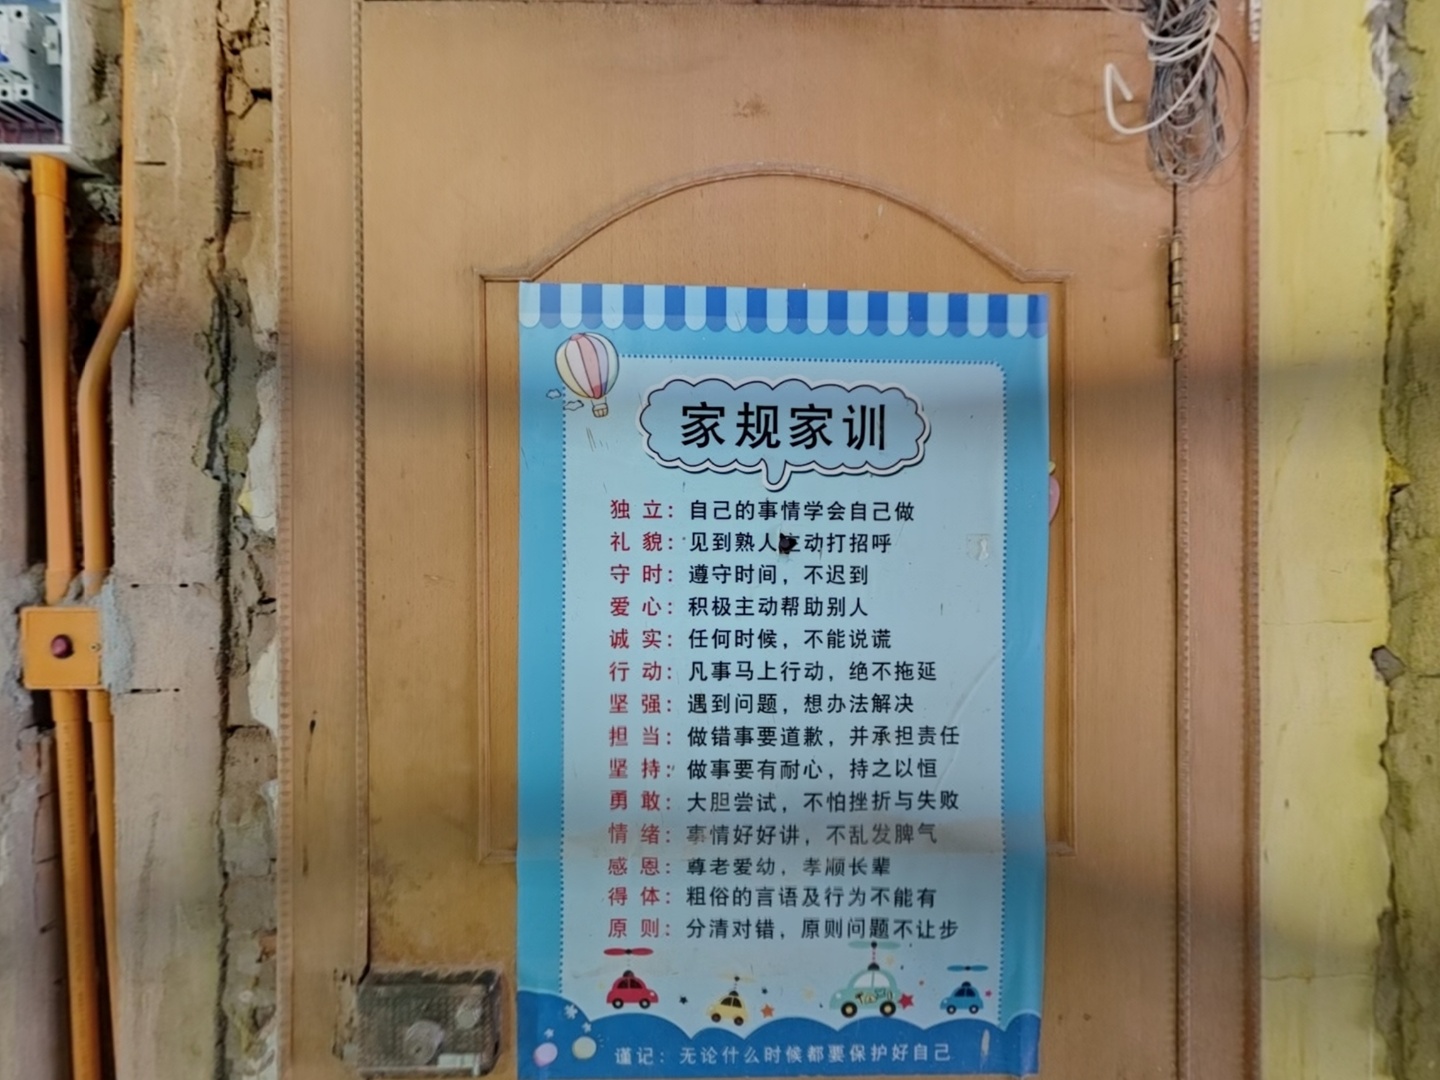 家规家训
独立：自己的事情学会自己做
礼貌：见到熟人主动打招呼
守时：遵守时间，不迟到
爱心：积极主动帮助别人
诚实：任何时候，不能说谎
行动：凡事马上行动，绝不拖延
坚强：遇到问题，想办法解决
担当：做错事要道歉，并承担责任
坚持：做事要有耐心，持之以恒
勇敢：大胆尝试，不怕挫折与失败
情绪：事情好好讲，不乱发脾气
感恩：尊老爱幼，孝顺长辈
得体：粗俗的言语及行为不能有
原则：分清对错，原则问题不让步
谨记：无论什么时候都要保护好自己